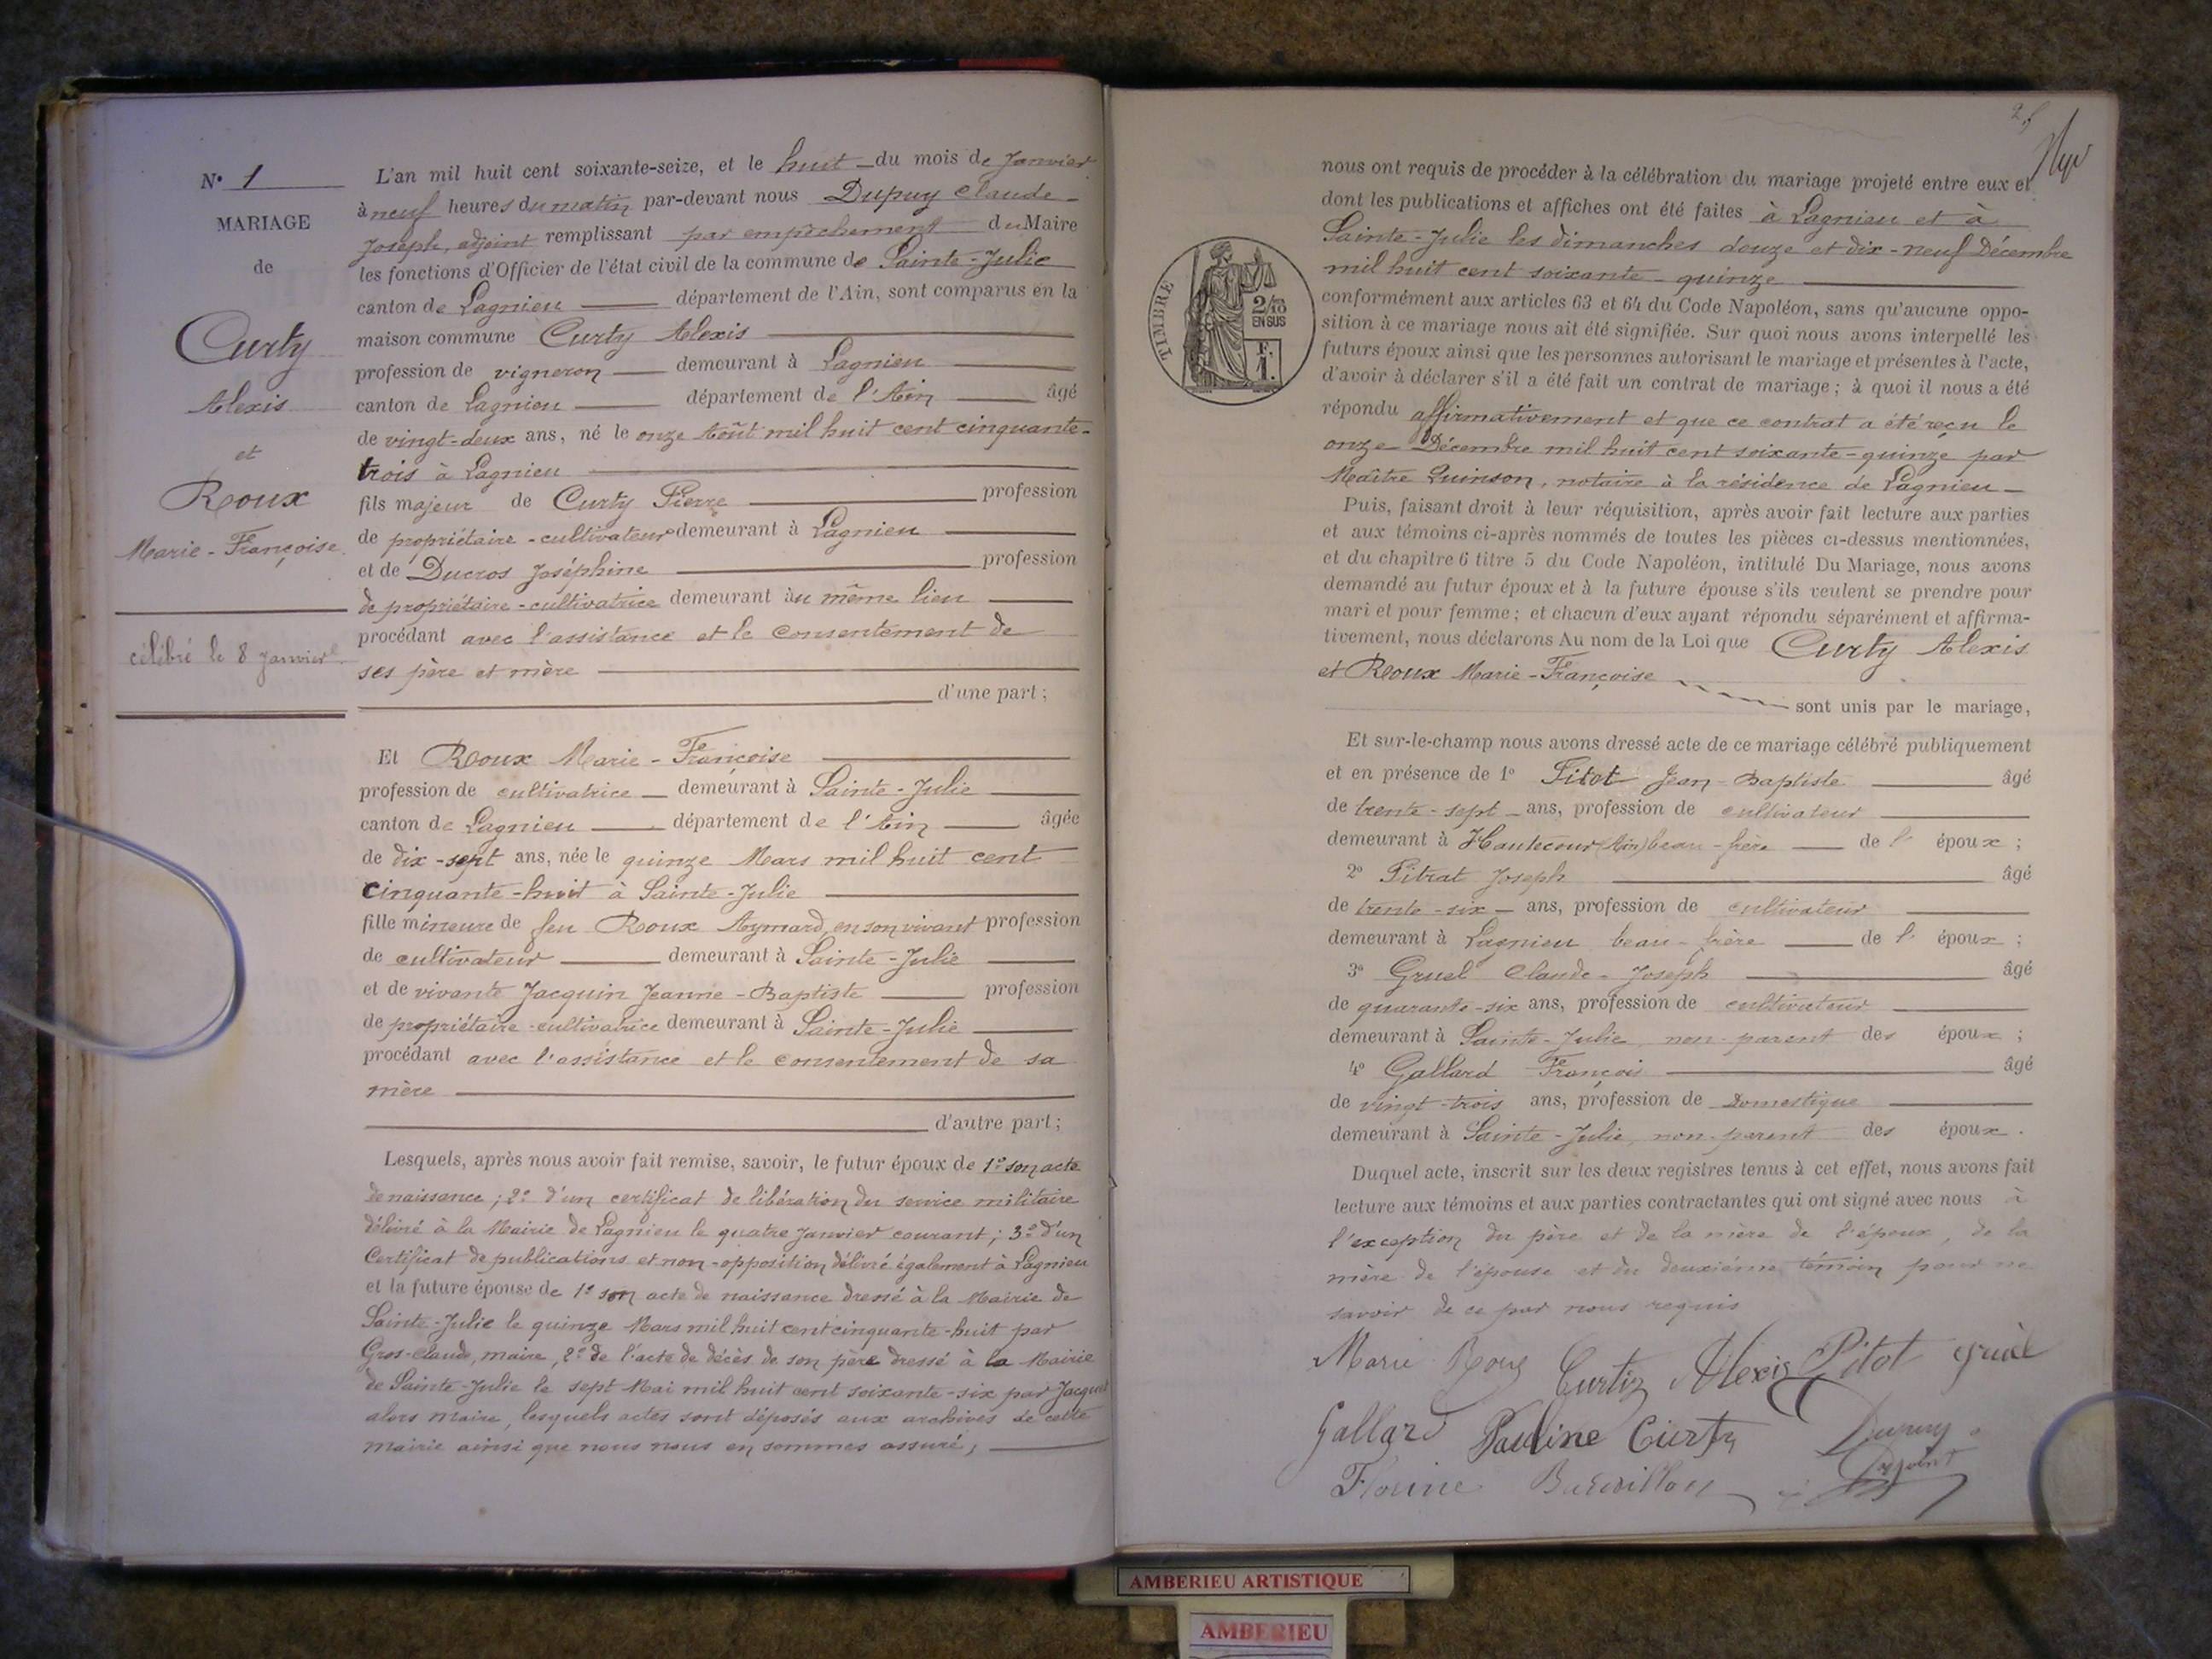 N° 1
MARIAGE
de
Curty
Alexis
et
Roux
Marie-Françoise
célébré le 8 Janvier
L'an mil huit cent soixante-seize, et le huit du mois de Janvier
à neuf heures du matin par-devant nous Dupuy Claude-
Joseph, adjoint remplissant par empêchement du Maire
les fonctions d'Officier de l'état civil de la commune de Sainte-Julie
canton de Lagnieu département de l'Ain, sont comparus en la
maison commune Curty Alexis
profession de vigneron demeurant à Lagnieu
canton de Lagnieu département de l'Ain âgé
de vingt-deux ans, né le onze Août mil huit cent cinquante-
trois à Lagnieu
fils majeur de Curty Pierre profession
de propriétaire-cultivateur demeurant à Lagnieu
et de Ducros Joséphine profession
de propriétaire-cultivatrice demeurant au même lieu
procédant avec l'assistance et le consentement de
ses père et mère
d'une part;
Et Roux Marie-Françoise
profession de cultivatrice demeurant à Sainte-Julie
canton de Lagnieu département de l'Ain âgée
de dix-sept ans, née le quinze Mars mil huit cent
cinquante-huit à Sainte-Julie
fille mineure de feu Roux Aymard, en son vivant profession
de cultivateur demeurant à Sainte-Julie
et de vivante Jacquin Jeanne-Baptiste profession
de propriétaire-cultivatrice demeurant à Sainte-Julie
procédant avec l'assistance et le consentement de sa
mère
d'autre part;
Lesquels, après nous avoir fait remise, savoir, le futur époux de 1° son acte
de naissance; 2° d'un certificat de libération du service militaire
délivré à la Mairie de Lagnieu le quatre Janvier courant; 3° d'un
Certificat de publications et non-opposition délivré également à Lagnieu
et la future épouse de 1° son acte de naissance dressé à la Mairie de
Sainte-Julie le quinze Mars mil huit cent cinquante-huit par
Gros-Claude, maire, 2° de l'acte de décès de son père dressé à la Mairie
de Sainte-Julie le sept Mai mil huit cent soixante-six par Jacquet
alors maire, lesquels actes sont déposés aux archives de cette
mairie ainsi que nous nous en sommes assuré;
25
TIMBRE
2/10
EN SUS
F.
1.
nous ont requis de procéder à la célébration du mariage projeté entre eux et
dont les publications et affiches ont été faites à Lagnieu et à
Sainte-Julie les dimanches douze et dix-neuf Décembre
mil huit cent soixante-quinze
conformément aux articles 63 et 64 du Code Napoléon, sans qu'aucune oppo-
sition à ce mariage nous ait été signifiée. Sur quoi nous avons interpellé les
futurs époux ainsi que les personnes autorisant le mariage et présentes à l'acte,
d'avoir à déclarer s'il a été fait un contrat de mariage; à quoi il nous a été
répondu affirmativement et que ce contrat a été reçu le
onze Décembre mil huit cent soixante-quinze par
Maître Quinson, notaire à la résidence de Lagnieu
Puis, faisant droit à leur réquisition, après avoir fait lecture aux parties
et aux témoins ci-après nommés de toutes les pièces ci-dessus mentionnées,
et du chapitre 6 titre 5 du Code Napoléon, intitulé Du Mariage, nous avons
demandé au futur époux et à la future épouse s'ils veulent se prendre pour
mari et pour femme; et chacun d'eux ayant répondu séparément et affirma-
tivement, nous déclarons Au nom de la Loi que Curty Alexis
et Roux Marie-Françoise
sont unis par le mariage,
Et sur-le-champ nous avons dressé acte de ce mariage célébré publiquement
et en présence de 1° Pitot Jean-Baptiste âgé
de trente-sept ans, profession de cultivateur
demeurant à Hautecour (Ain) beau-frère de l' époux;
2° Pitrat Joseph âgé
de trente-six ans, profession de cultivateur
demeurant à Lagnieu beau-frère de l' époux;
3° Gruel Claude-Joseph âgé
de quarante-six ans, profession de cultivateur
demeurant à Sainte-Julie, non-parent des époux;
4° Gallard François âgé
de vingt-trois ans, profession de Domestique
demeurant à Sainte-Julie, non-parent des époux.
Duquel acte, inscrit sur les deux registres tenus à cet effet, nous avons fait
lecture aux témoins et aux parties contractantes qui ont signé avec nous à
l'exception du père et de la mère de l'époux, de la
mère de l'épouse et du deuxième témoin pour ne
savoir de ce par nous requis
Marie Roux Curtiz Alexis Pitot gruel
Gallard Pauline Curty Dupuy
Florine adjoint
AMBERIEU ARTISTIQUE
AMBERIEU